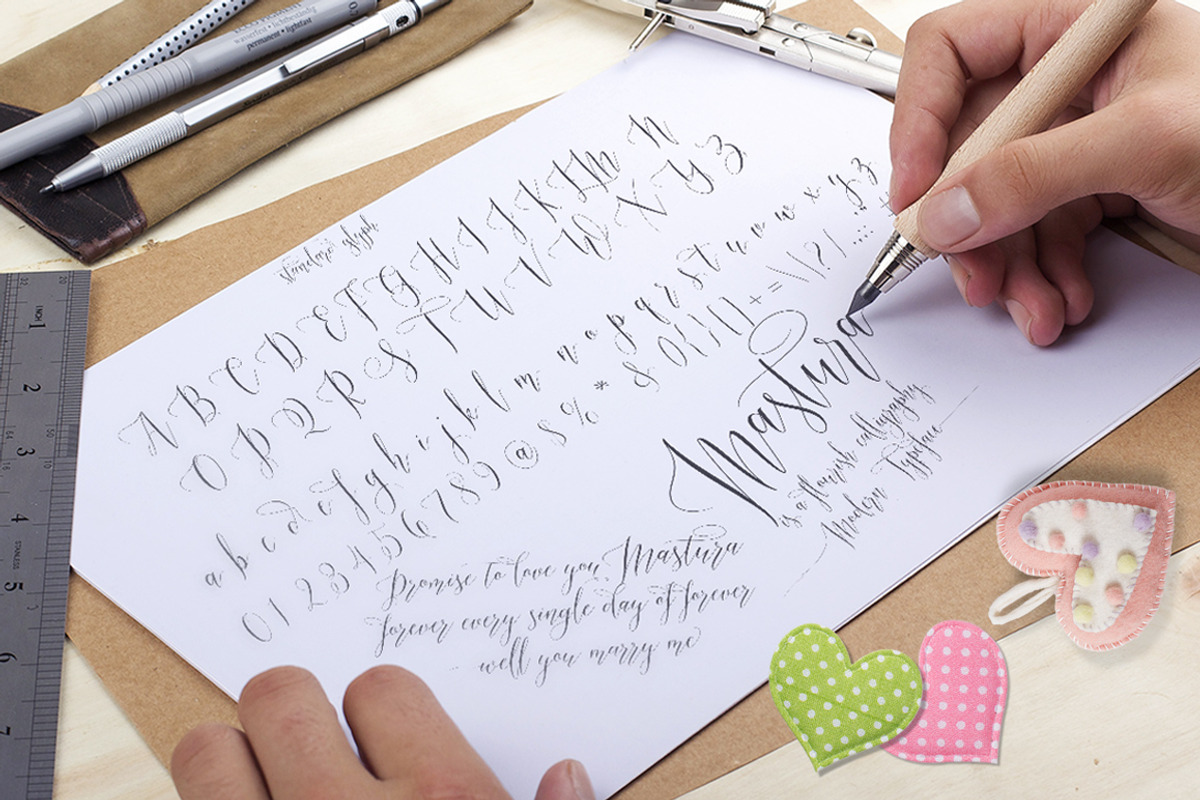 wasserfest • lichtbeständig
permanent • lightfast
standard glyph
A B C D E F G H I J K L M N
O P Q R S T U V W X Y Z
a b c d e f g h i j k l m n o p q r s t u v w x y z
0 1 2 3 4 5 6 7 8 9 @ $ % * & () {} [] + = \ | ? /
Mastura
is a flourish calligraphy
Modern Typeface
Promise to love you Mastura
forever every single day of forever
well you marry me
INCH
1
2
3
4
STAINLESS
5
6
7